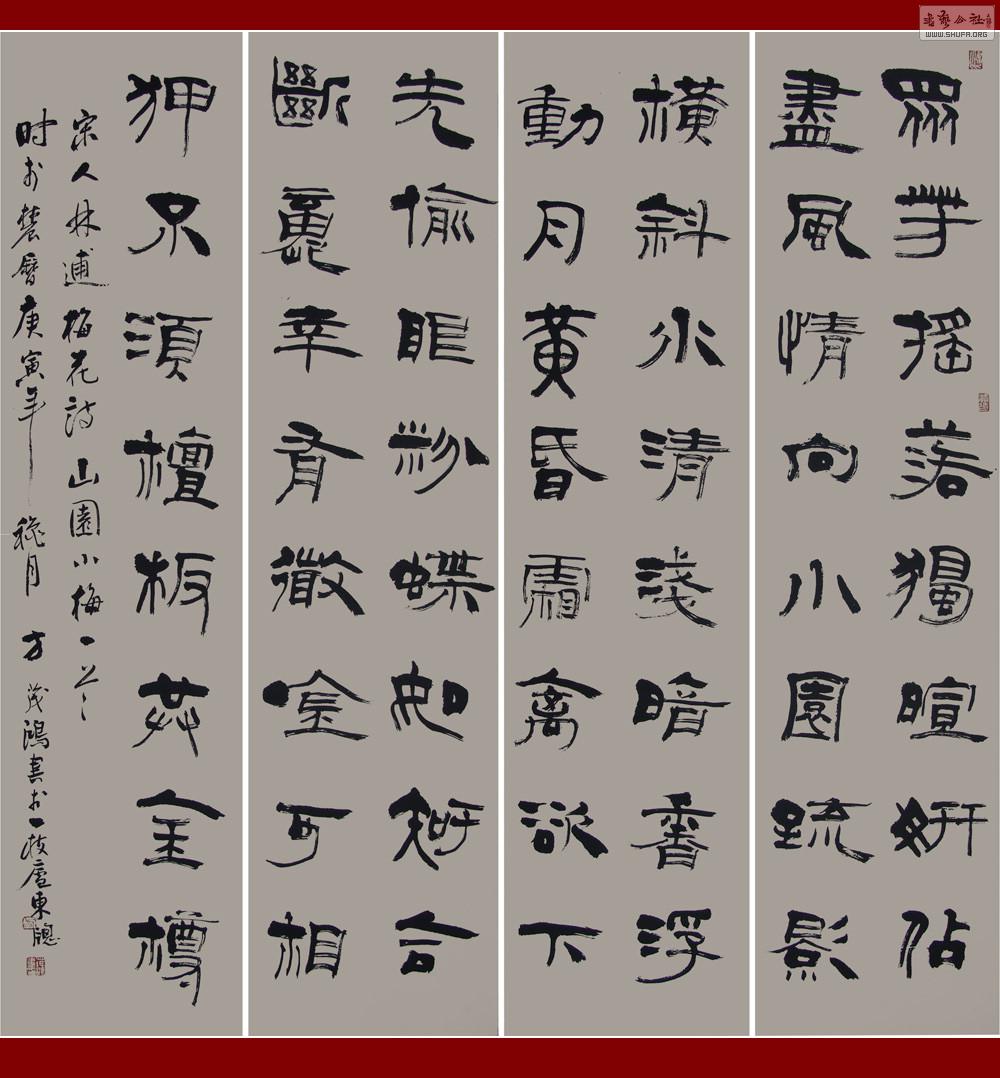 眾芳搖落獨暄妍佔
盡風情向小園疏影
橫斜水清淺暗香浮
動月黃昏霜禽欲下
先偷眼粉蝶如知合
斷魂幸有微吟可相
狎不須檀板共金樽
宋人林逋梅花詩山園小梅一首
时於農曆庚寅年穐月方茂鴻書於一枝廬東牕
書藝公社
WWW.SHUFA.ORG